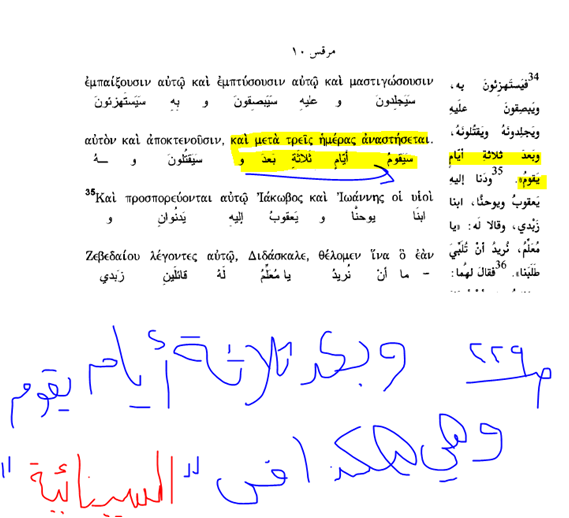 مرقس ١٠
ἐμπαίξουσιν αὐτῷ καὶ ἐμπτύσουσιν αὐτῷ καὶ μαστιγώσουσιν
سَيَستَهزِئونَ بِهِ و سَيَبصِقونَ عَلَيهِ و سَيَجلِدونَ
αὐτὸν καὶ ἀποκτενοῦσιν, καὶ μετὰ τρεῖς ἡμέρας ἀναστήσεται.
ـهُ و سَيَقتُلونَ و بَعدَ ثَلاثَةِ أيّامٍ سَيَقومُ
³⁵Καὶ προσπορεύονται αὐτῷ Ἰάκωβος καὶ Ἰωάννης οἱ υἱοὶ
و يَدنُوانِ إلَيهِ يَعقوبُ و يوحَنّا ابنَا
Ζεβεδαίου λέγοντες αὐτῷ, Διδάσκαλε, θέλομεν ἵνα ὃ ἐὰν
زَبَدي قائلَينِ لَهُ يا مُعَلِّمُ نُريدُ أنْ ما -
³⁴فيَستَهزِئونَ بِهِ،
ويَبصِقونَ علَيهِ
ويَجلِدونَهُ ويَقتُلونَهُ،
وبَعدَ ثلاثةِ أيّامٍ
يَقومُ». ³⁵ودَنا إليهِ
يَعقوبُ ويوحَنّا، ابنا
زَبَدي، وقالا لَهُ: «يا
مُعَلِّمُ، نُريدُ أنْ تُلَبِّيَ
طَلَبَنا». ³⁶فَقالَ لهُما:
ص ٢٢٩ وبعد ثلاثة أيام يقوم
وهي هكذا في "السينائية"